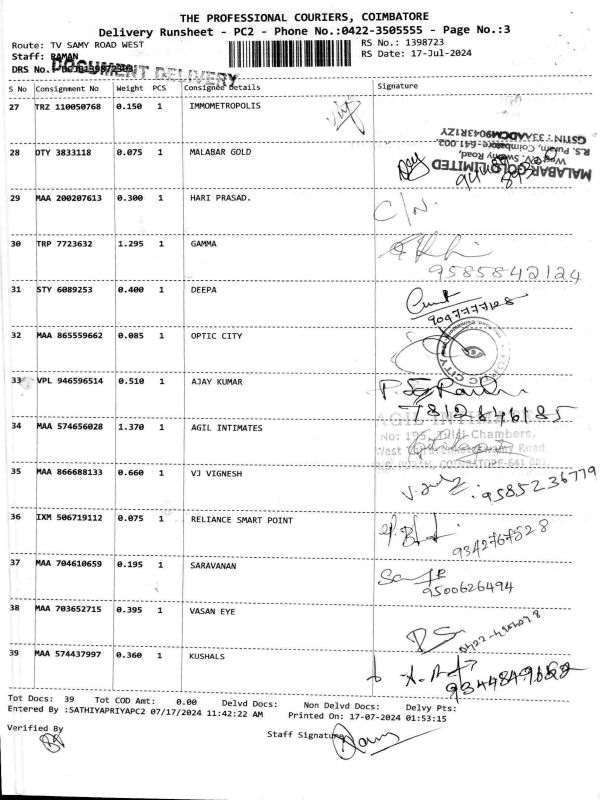 THE PROFESSIONAL COURIERS, COIMBATORE
Delivery Runsheet - PC2 - Phone No.:0422-3505555 - Page No.:3
Route: TV SAMY ROAD WEST RS No.: 1398723
Staff: RAMAN RS Date: 17-Jul-2024
DRS No.:
DOCUMENT DELIVERY
S No Consignment No Weight PCS Consignee Details Signature
27 TRZ 110050768 0.150 1 IMMOMETROPOLIS
28 OTY 3833118 0.075 1 MALABAR GOLD
MALABAR GOLD LIMITED
West T.V. Swamy Road,
R.S. Puram, Coimbatore-641 002.
29 MAA 200207613 0.300 1 HARI PRASAD. C/N.
30 TRP 7723632 1.295 1 GAMMA
9585842124
31 STY 6089253 0.400 1 DEEPA
32 MAA 865559662 0.085 1 OPTIC CITY
33 VPL 946596514 0.510 1 AJAY KUMAR
7812846185
34 MAA 574656028 1.370 1 AGIL INTIMATES
AGIL
No: 195, Chambers,
35 MAA 866688133 0.660 1 VJ VIGNESH
9585236779
36 IXM 506719112 0.075 1 RELIANCE SMART POINT
9342767528
37 MAA 704610659 0.195 1 SARAVANAN
9500626494
38 MAA 703652715 0.395 1 VASAN EYE
39 MAA 574437997 0.360 1 KUSHALS
Tot Docs: 39 Tot COD Amt: 0.00 Delvd Docs: Non Delvd Docs: Delvy Pts:
Entered By :SATHIYAPRIYAPC2 07/17/2024 11:42:22 AM Printed On: 17-07-2024 01:53:15
Verified By Staff Signature